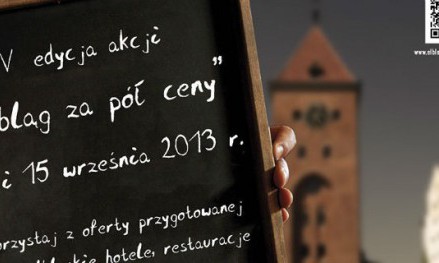 V edycja akcji
bląg za pół ceny”
i 15 września 2013 r.
rzystaj z oferty przygotowanej
hotele, restauracje
www.elbl